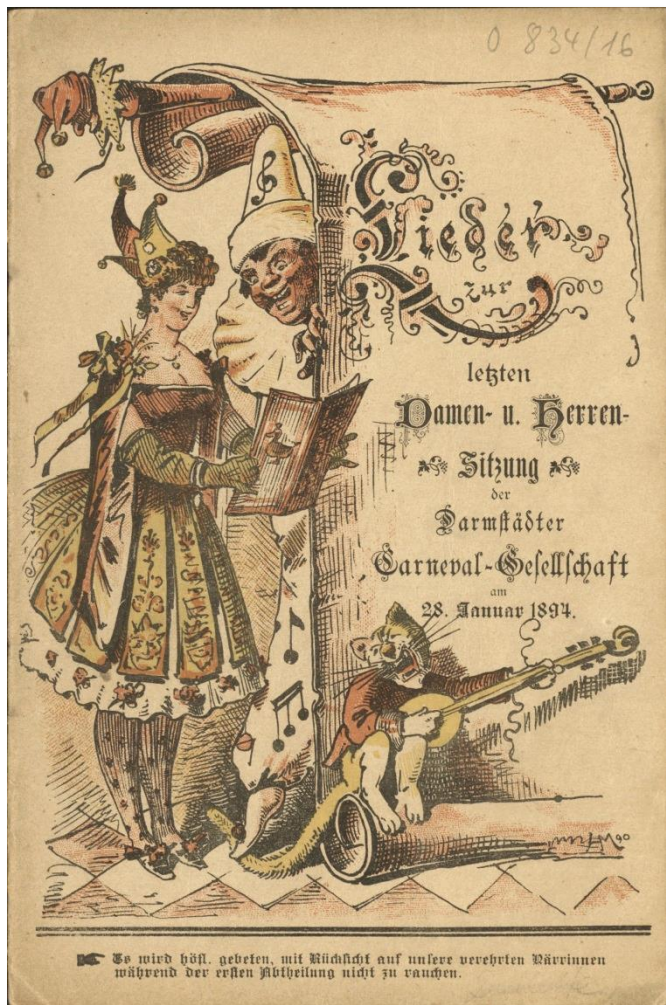 O 834/16
Lieder
zur
letzten
Damen- u. Herren-
Sitzung
der
Darmstädter
Carneval-Gesellschaft
am
28. Januar 1894.
Es wird höfl. gebeten, mit Rücksicht auf unsere verehrten Närrinnen
während der ersten Abtheilung nicht zu rauchen.